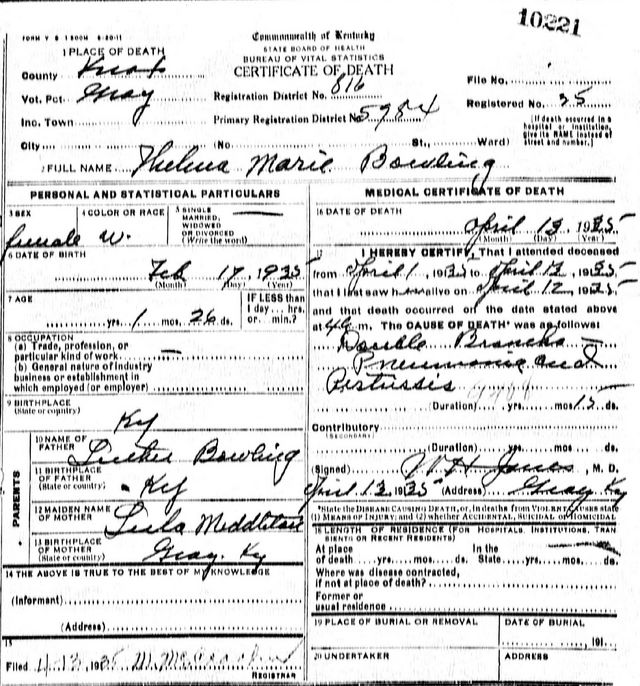 10221
FORM V S 1 500M 8-20-11
Commonwealth of Kentucky
STATE BOARD OF HEALTH
BUREAU OF VITAL STATISTICS
CERTIFICATE OF DEATH
1 PLACE OF DEATH
County Knox
Vot. Pct Gray
Inc. Town
City
Registration District No. 816
Primary Registration District No. 5984
(No St., Ward)
File No.
Registered No. 35
[If death occurred in a
hospital or institution,
give its NAME instead of
street and number.]
2 FULL NAME Thelma Marie Bowling
PERSONAL AND STATISTICAL PARTICULARS
3 SEX
female
4 COLOR OR RACE
W.
5 SINGLE
MARRIED,
WIDOWED
OR DIVORCED
(Write the word)
6 DATE OF BIRTH
Feb 17 1935
(Month) (Day) (Year)
7 AGE
yrs. 1 mos. 26 ds.
IF LESS than
1 day... hrs.
or... min.?
8 OCCUPATION
(a) Trade, profession, or
particular kind of work
(b) General nature of industry
business or establishment in
which employed (or employer)
9 BIRTHPLACE
(State or country)
Ky
PARENTS
10 NAME OF
FATHER Luther Bowling
11 BIRTHPLACE
OF FATHER
(State or country) Ky
12 MAIDEN NAME
OF MOTHER Lula
13 BIRTHPLACE
OF MOTHER
(State or country) Gray. Ky
14 THE ABOVE IS TRUE TO THE BEST OF MY KNOWLEDGE
(Informant)
(Address)
15
Filed 4-13 1935 M.
REGISTRAR
MEDICAL CERTIFICATE OF DEATH
16 DATE OF DEATH
April 13 1935
(Month) (Day) (Year)
17 I HEREBY CERTIFY, That I attended deceased
from April 1, 1935 to April 12, 1935
that I last saw h alive on April 12, 1935
and that death occurred on the date stated above
at m. The CAUSE OF DEATH* was as follows:
Double Broncho
Pneumonia and
Pertussis
(Duration) yrs. mos. ds.
Contributory
(SECONDARY)
(Duration) yrs. mos. ds.
(Signed) W H Jones, M. D.
April 13 1935 (Address) Gray Ky
*State the DISEASE CAUSING DEATH, or, in deaths from VIOLENT CAUSES state
(1) MEANS OF INJURY; and (2) whether ACCIDENTAL, SUICIDAL or HOMICIDAL
18 LENGTH OF RESIDENCE (FOR HOSPITALS, INSTITUTIONS, TRANSIENTS OR RECENT RESIDENTS)
At place
of death yrs. mos. ds.
In the
State yrs. mos. ds.
Where was disease contracted,
if not at place of death?
Former or
usual residence
19 PLACE OF BURIAL OR REMOVAL
DATE OF BURIAL
191
20 UNDERTAKER
ADDRESS